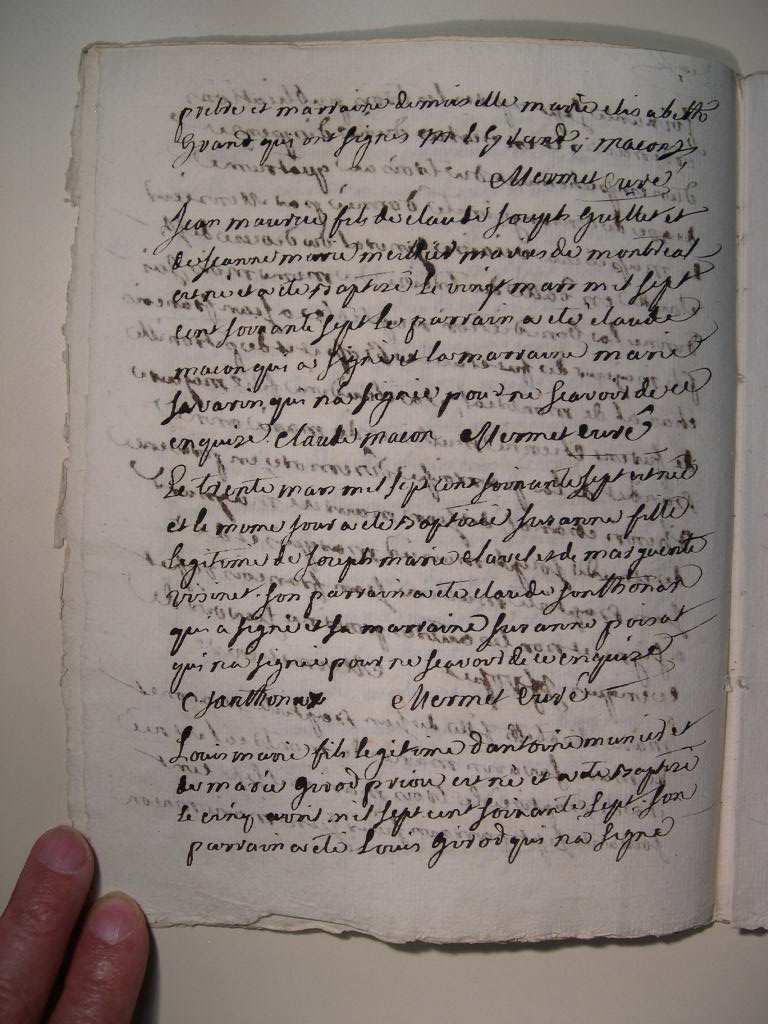 prebtre et marraine demoiselle marie elisabeth
Grand qui ont signes m e Grand; macon
Mermet curé
Jean maurice fils de claude Joseph Guillet et
de Jeanne marie mercier mariés de montreat
est ne et a ete baptizé le vingt mars mil sept
cent soixante sept le parrain a ete claude
macon qui a signé et la marraine marie
Savarin qui na signée pour ne scavoir de ce
enquize. Claude macon Mermet curé
Le trente mars mil sept cent soixante sept est née
et le mome jour a ete baptisée suzanne fille
legitime de Joseph marie clavel et de marguerite
Vismet. son parrain a ete claude Jonthonax
qui a signé et sa marraine suzanne poisat
qui na signée pour ne scavoir de ce enquize
C Janthonax Mermet Curé
Louis marie fils legitime d'antoine munier et
de marie girod priou est né et a ete baptizé
le cinq avril mil sept cent soixante sept. son
parrain a eté Louis girod qui na signé